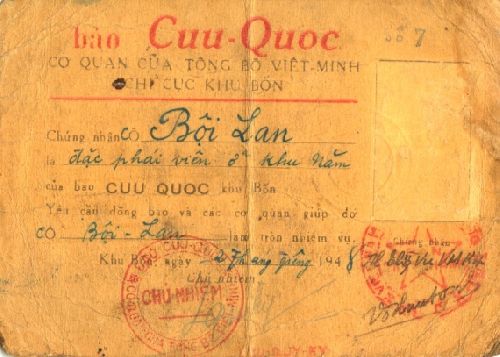 báo Cuu-Quoc
Số 7
CƠ QUAN CỦA TỔNG BỘ VIỆT-MINH
CHI CỤC KHU BỐN
Chứng nhận CÔ Bội Lan
là đặc phái viên ở khu Năm
của báo CUU QUOC khu Bốn
Yêu cầu đồng bào và các cơ quan giúp đỡ
CÔ Bội-Lan làm tròn nhiệm vụ.
Khu Bốn ngày 12 tháng giêng 1948
Chủ nhiệm
CHỦ-NHIỆM
Chứng nhận